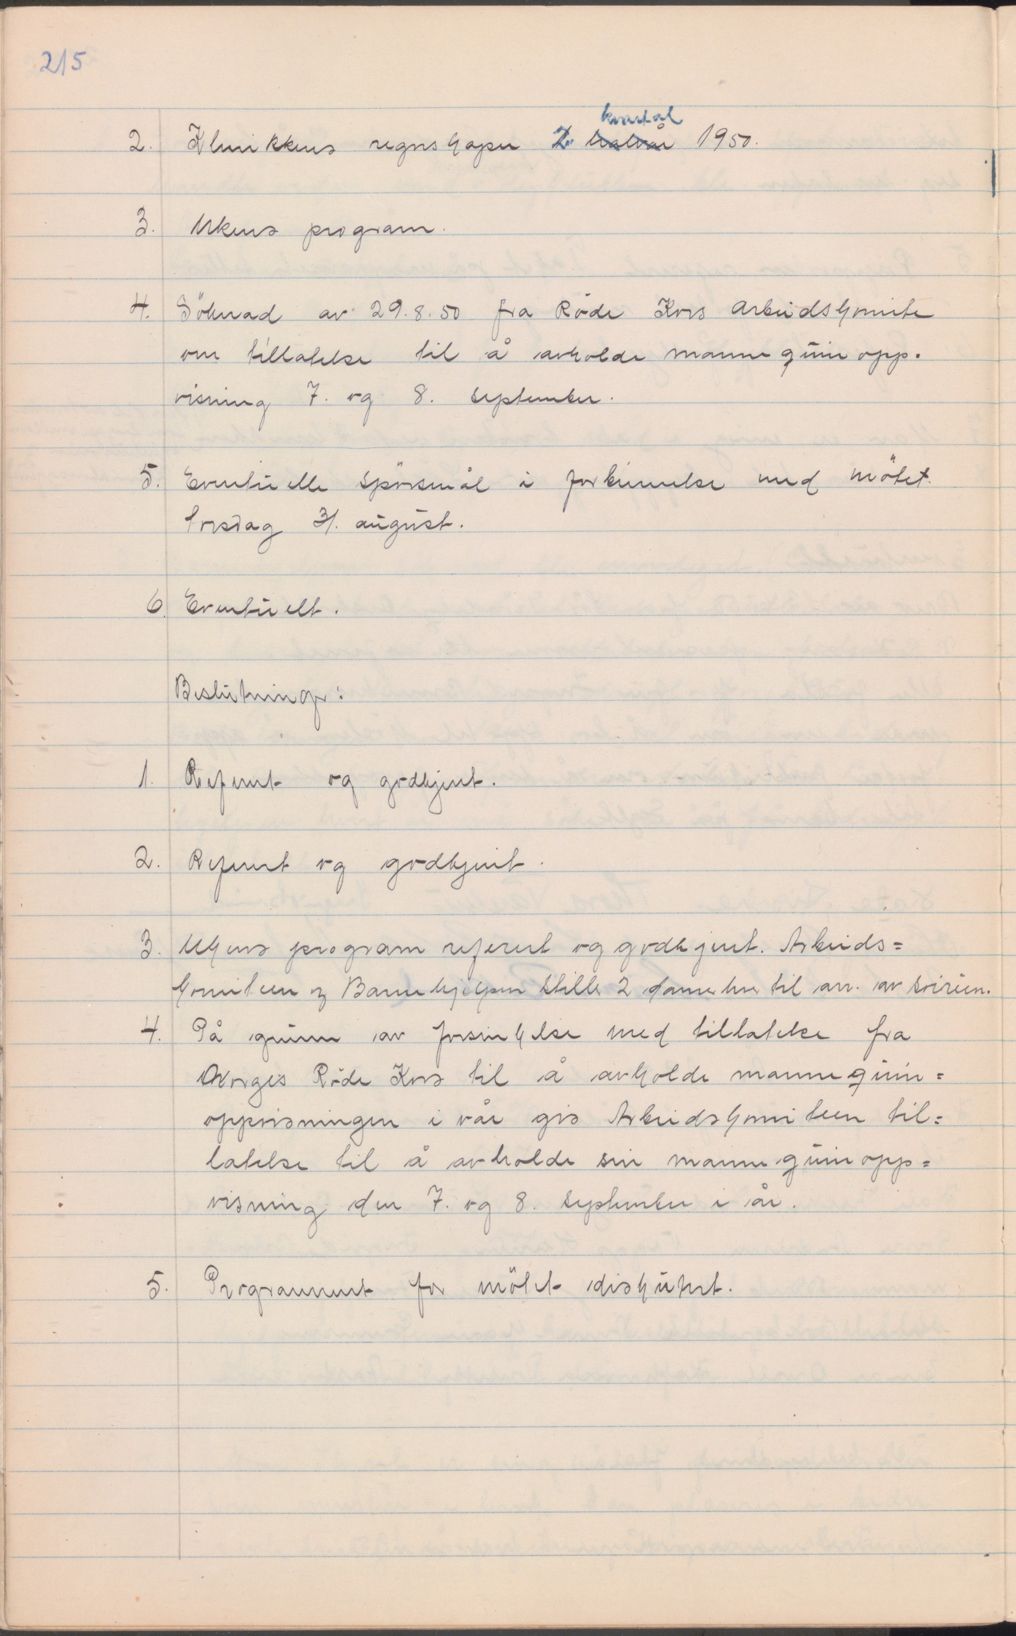 215
kvartal
2. Klinikkens regnskaper 2. halvår 1950.
3. Ukens program.
4. Söknad av 29.8.50 fra Røde Kors Arbeidskomite
om tillatelse til å avholde mannequinopp-
visning 7. og 8. september.
5. Eventuelle spörsmål i forbinnelse med mötet
torsdag 31. august.
6. Eventuelt.
Beslutninger:
1. Referert og godkjent.
2. Referert og godkjent.
3. Ukens program referert og godkjent. Arbeids=
komiteen og Barnehjelpen stiller 2 damer hver til arr. av soireen.
4. På grunn av forsinkelse med tillatelse fra
Norges Røde Kors til å avholde mannequin=
oppvisningen i vår gis Arbeidskomiteen til=
latelse til å avholde sin mannequinopp=
visning den 7. og 8. september i år.
5. Programmet for mötet diskutert.